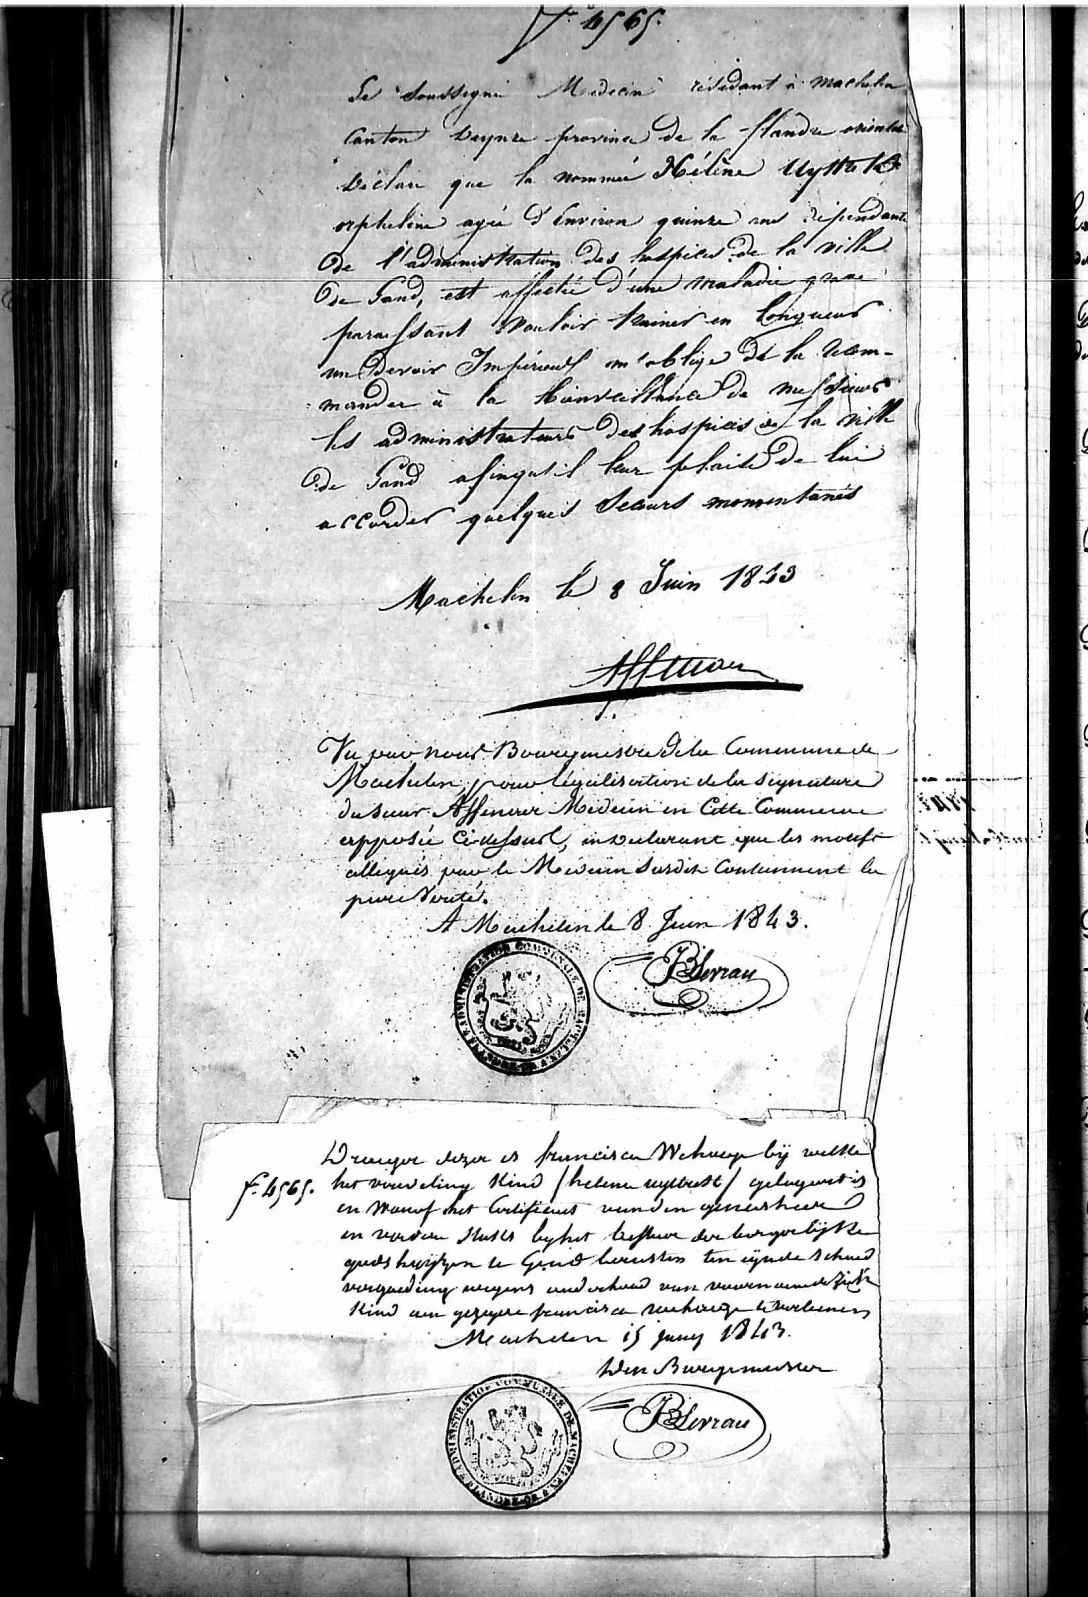 f. 4565.
Le soussigné Médecin résidant à Machelen
Canton Deynze province de la flandre orientale
Déclare que la nommée Hélène Uytt
orpheline agée d'Environ quinze ans dépendante
de l'administration des hospices de la ville
de Gand, est affectée d'une maladie grave
paraissant vouloir trainer en longueur
un devoir Impérieux m'oblige de la recom-
mander à la bienveillance de messieurs
les administrateurs des hospices de la ville
de Gand afinqu'il leur plaise de lui
accorder quelques secours momentanés
Machelen le 8 Juin 1843
Vu par nous Bourgmestre de la Commune de
Machelen, pour légalisation de la signature
du sieur Médecin en Cette Commune
apposée Ci-dessus, en déclarant que les motifs
allegués par le Médecin susdit Contiennent la
pure Verité.
A Machelen le 8 Juin 1843.
ADMINISTRATION COMMUNALE DE MACHELEN
FLANDRE OR
Drager dezer is francisca by welke
f. 4565. het voordeling Kind / helena / is
en waarof het Certificaet van den geneesheer
by het bestuer der burgerlyke
godshuyzen te Gend ten eynde schaed
vergoeding wegens onderhoud van voornoemde ziek
Kind aen gezegde francisca te verleenen
Machelen 15 juny 1843.
Den Burgemeester
ADMINISTRATION COMMUNALE DE MACHELEN
FLANDRE OR